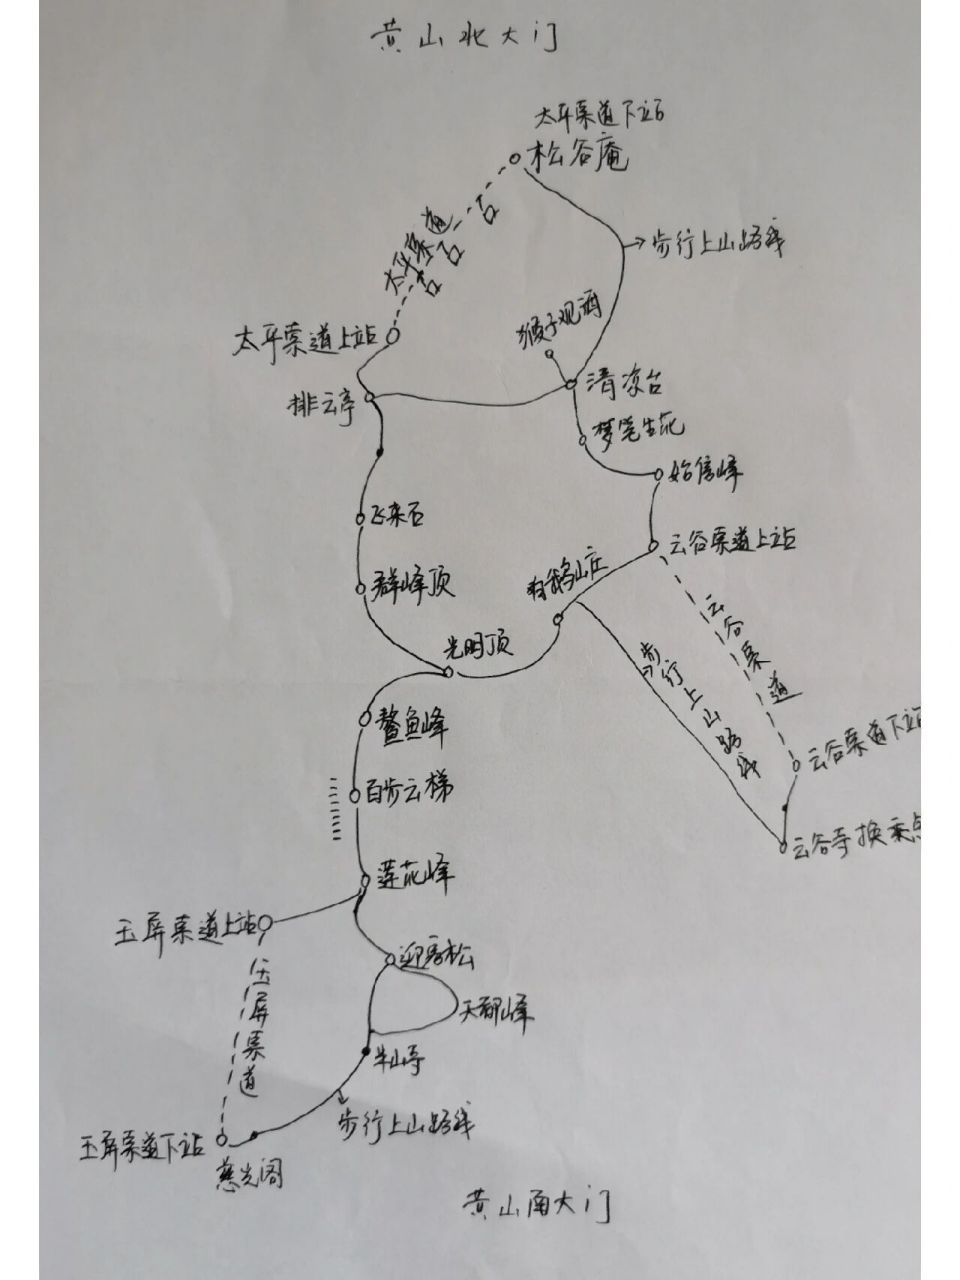 黄山北大门
太平索道下站
松谷庵
太平索道
步行上山路线
猴子观海
太平索道上站
清凉台
排云亭
梦笔生花
始信峰
飞来石
云谷索道上站
白鹅山庄
群峰顶
云谷索道
光明顶
步行上山路线
鳌鱼峰
云谷索道下站
百步云梯
云谷寺换乘点
莲花峰
玉屏索道上站
迎客松
玉屏索道
天都峰
半山寺
步行上山路线
玉屏索道下站
慈光阁
黄山南大门